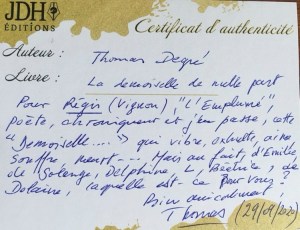 JDH
ÉDITIONS
Certificat d'authenticité
Auteur : Thomas Degré
Livre : La demoiselle de nulle part
Pour Régis (Vignon) "L'Emplumé",
poète, chroniqueur et j'en passe, cette
"Demoiselle...." qui vibre, exhulte, aime
souffre meurt... Mais au fait, d'Emilie
de Solenge, Delphine L, Béatrice, de
laquelle est-ce pour vous ?
Bien amicalement
Thomas (29/09/2020)